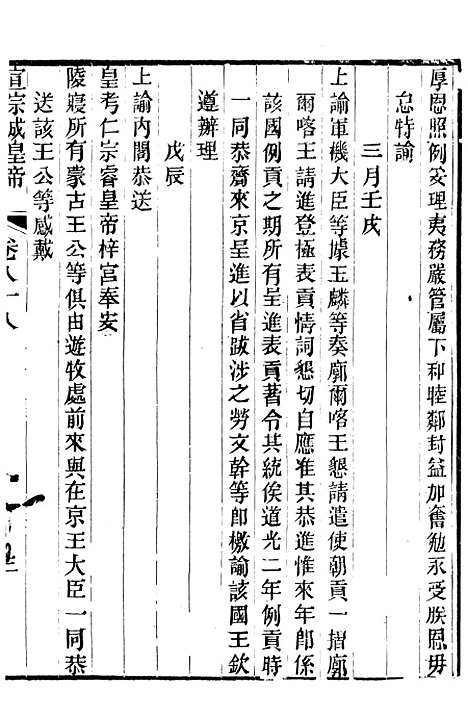 厚恩照例妥理夷務嚴管屬下和睦鄰封益加奮勉永受朕恩毋
怠特諭
三月壬戌
上諭軍機大臣等據玉麟等奏廓爾喀王懇請遣使朝貢一摺廓
爾喀王請進登極表貢情詞懇切自應准其恭進惟來年卽係
該國例貢之期所有呈進表貢著令其統俟道光二年例貢時
一同恭齎來京呈進以省跋涉之勞文幹等卽檄諭該國王欽
遵辦理
戊辰
上諭內閣恭送
皇考仁宗睿皇帝梓宮奉安
陵寢所有蒙古王公等俱由遊牧處前來與在京王大臣一同恭
送該王公等感戴
宣宗成皇帝 卷八十八